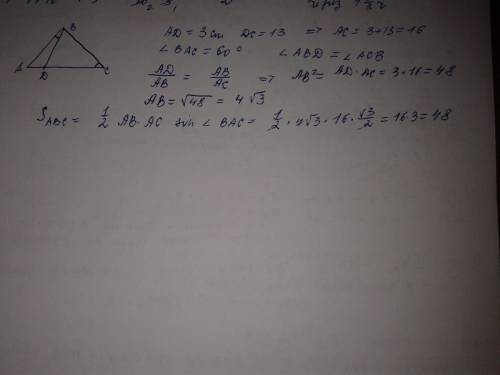 B
A D C
AD = 3 cm DC = 13 => AC = 3+13 = 16
∠BAC = 60° ∠ABD = ∠ACB
AD/AB = AB/AC => AB² = AD·AC = 3·16 = 48
AB = √48 = 4√3
S ABC = 1/2 AB·AC sin ∠BAC = 1/2 · 4√3 · 16 · √3/2 = 16·3 = 48